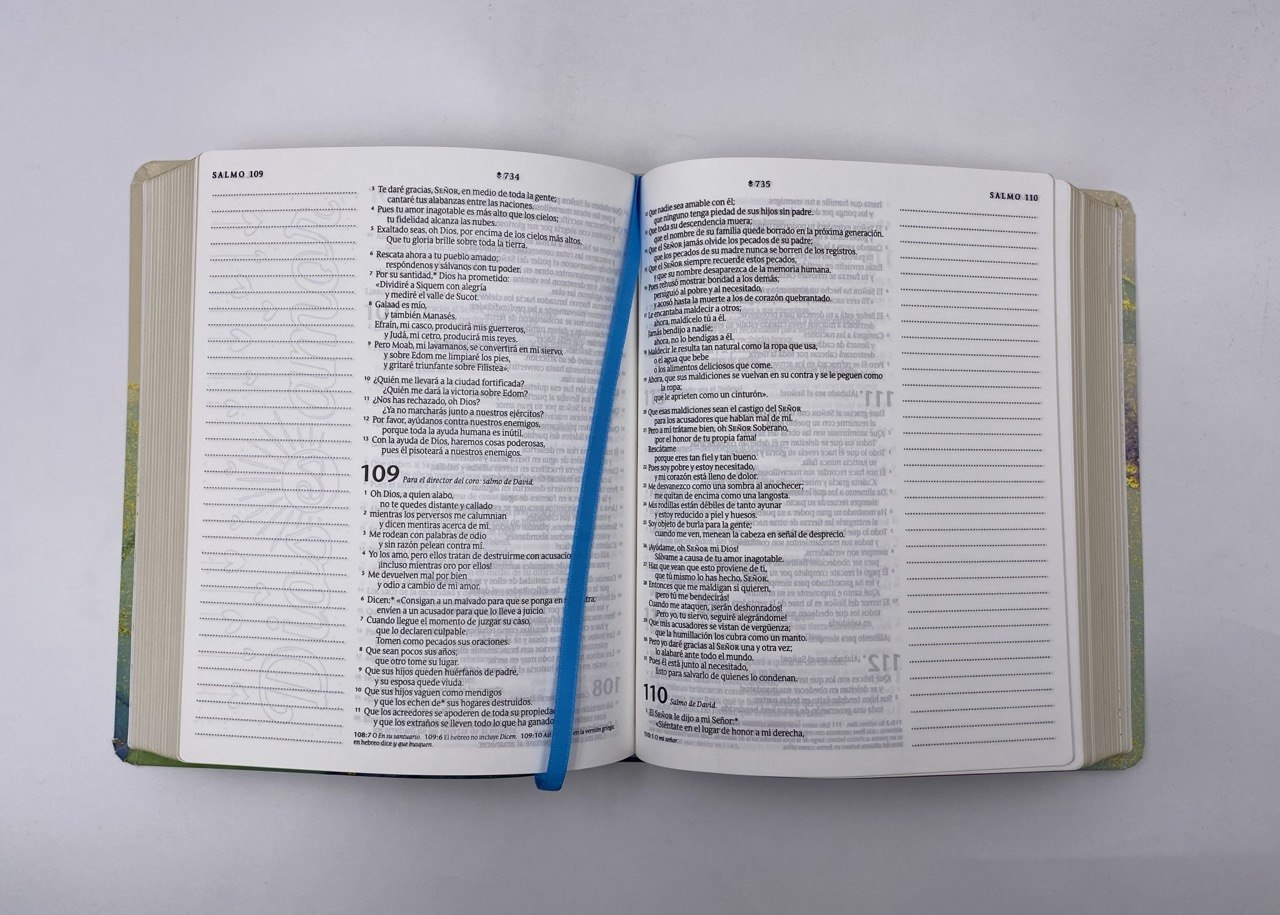 SALMO 109
734
3 Te daré gracias, SEÑOR, en medio de toda la gente;
cantaré tus alabanzas entre las naciones.
4 Pues tu amor inagotable es más alto que los cielos;
tu fidelidad alcanza las nubes.
5 Exaltado seas, oh Dios, por encima de los cielos más altos.
Que tu gloria brille sobre toda la tierra.
6 Rescata ahora a tu pueblo amado;
respóndenos y sálvanos con tu poder.
7 Por su santidad,* Dios ha prometido:
«Dividiré a Siquem con alegría
y mediré el valle de Sucot.
8 Galaad es mío,
y también Manasés.
Efraín, mi casco, producirá mis guerreros,
y Judá, mi cetro, producirá mis reyes.
9 Pero Moab, mi lavamanos, se convertirá en mi siervo,
y sobre Edom me limpiaré los pies,
y gritaré triunfante sobre Filistea».
10 ¿Quién me llevará a la ciudad fortificada?
¿Quién me dará la victoria sobre Edom?
11 ¿Nos has rechazado, oh Dios?
¿Ya no marcharás junto a nuestros ejércitos?
12 Por favor, ayúdanos contra nuestros enemigos,
porque toda la ayuda humana es inútil.
13 Con la ayuda de Dios, haremos cosas poderosas,
pues él pisoteará a nuestros enemigos.
109 Para el director del coro: salmo de David.
1 Oh Dios, a quien alabo,
no te quedes distante y callado
2 mientras los perversos me calumnian
y dicen mentiras acerca de mí.
3 Me rodean con palabras de odio
y sin razón pelean contra mí.
4 Yo los amo, pero ellos tratan de destruirme con acusacio
¡incluso mientras oro por ellos!
5 Me devuelven mal por bien
y odio a cambio de mi amor.
6 Dicen:* «Consigan a un malvado para que se ponga en
envíen a un acusador para que lo lleve a juicio.
7 Cuando llegue el momento de juzgar su caso,
que lo declaren culpable.
Tomen como pecados sus oraciones.
8 Que sean pocos sus años;
que otro tome su lugar.
9 Que sus hijos queden huérfanos de padre,
y su esposa quede viuda.
10 Que sus hijos vaguen como mendigos
y que los echen de* sus hogares destruidos.
11 Que los acreedores se apoderen de toda su propieda
y que los extraños se lleven todo lo que ha ganado
108:7 O En su santuario. 109:6 El hebreo no incluye Dicen. 109:10 en la versión griega;
en hebreo dice y que busquen.
735
SALMO 110
12 Que nadie sea amable con él;
que ninguno tenga piedad de sus hijos sin padre.
13 Que toda su descendencia muera;
que el nombre de su familia quede borrado en la próxima generación.
14 Que el SEÑOR jamás olvide los pecados de su padre;
que los pecados de su madre nunca se borren de los registros.
15 Que el SEÑOR siempre recuerde estos pecados,
y que su nombre desaparezca de la memoria humana.
16 Pues rehusó mostrar bondad a los demás;
persiguió al pobre y al necesitado,
y acosó hasta la muerte a los de corazón quebrantado.
17 Le encantaba maldecir a otros;
ahora, maldícelo tú a él.
Jamás bendijo a nadie;
ahora, no lo bendigas a él.
18 Maldecir le resulta tan natural como la ropa que usa,
o el agua que bebe
o los alimentos deliciosos que come.
19 Ahora, que sus maldiciones se vuelvan en su contra y se le peguen como
la ropa;
que le aprieten como un cinturón».
20 Que esas maldiciones sean el castigo del SEÑOR
para los acusadores que hablan mal de mí.
21 Pero a mí trátame bien, oh SEÑOR Soberano,
¡por el honor de tu propia fama!
Rescátame
porque eres tan fiel y tan bueno.
22 Pues soy pobre y estoy necesitado,
y mi corazón está lleno de dolor.
23 Me desvanezco como una sombra al anochecer;
me quitan de encima como una langosta.
24 Mis rodillas están débiles de tanto ayunar
y estoy reducido a piel y huesos.
25 Soy objeto de burla para la gente;
cuando me ven, menean la cabeza en señal de desprecio.
26 ¡Ayúdame, oh SEÑOR mi Dios!
Sálvame a causa de tu amor inagotable.
27 Haz que vean que esto proviene de ti,
que tú mismo lo has hecho, SEÑOR.
28 Entonces que me maldigan si quieren,
¡pero tú me bendecirás!
Cuando me ataquen, ¡serán deshonrados!
¡Pero yo, tu siervo, seguiré alegrándome!
29 Que mis acusadores se vistan de vergüenza;
que la humillación los cubra como un manto.
30 Pero yo daré gracias al SEÑOR una y otra vez;
lo alabaré ante todo el mundo.
31 Pues él está junto al necesitado,
listo para salvarlo de quienes lo condenan.
110 Salmo de David.
1 El SEÑOR le dijo a mi Señor:*
«Siéntate en el lugar de honor a mi derecha,
110:1 O mi señor.